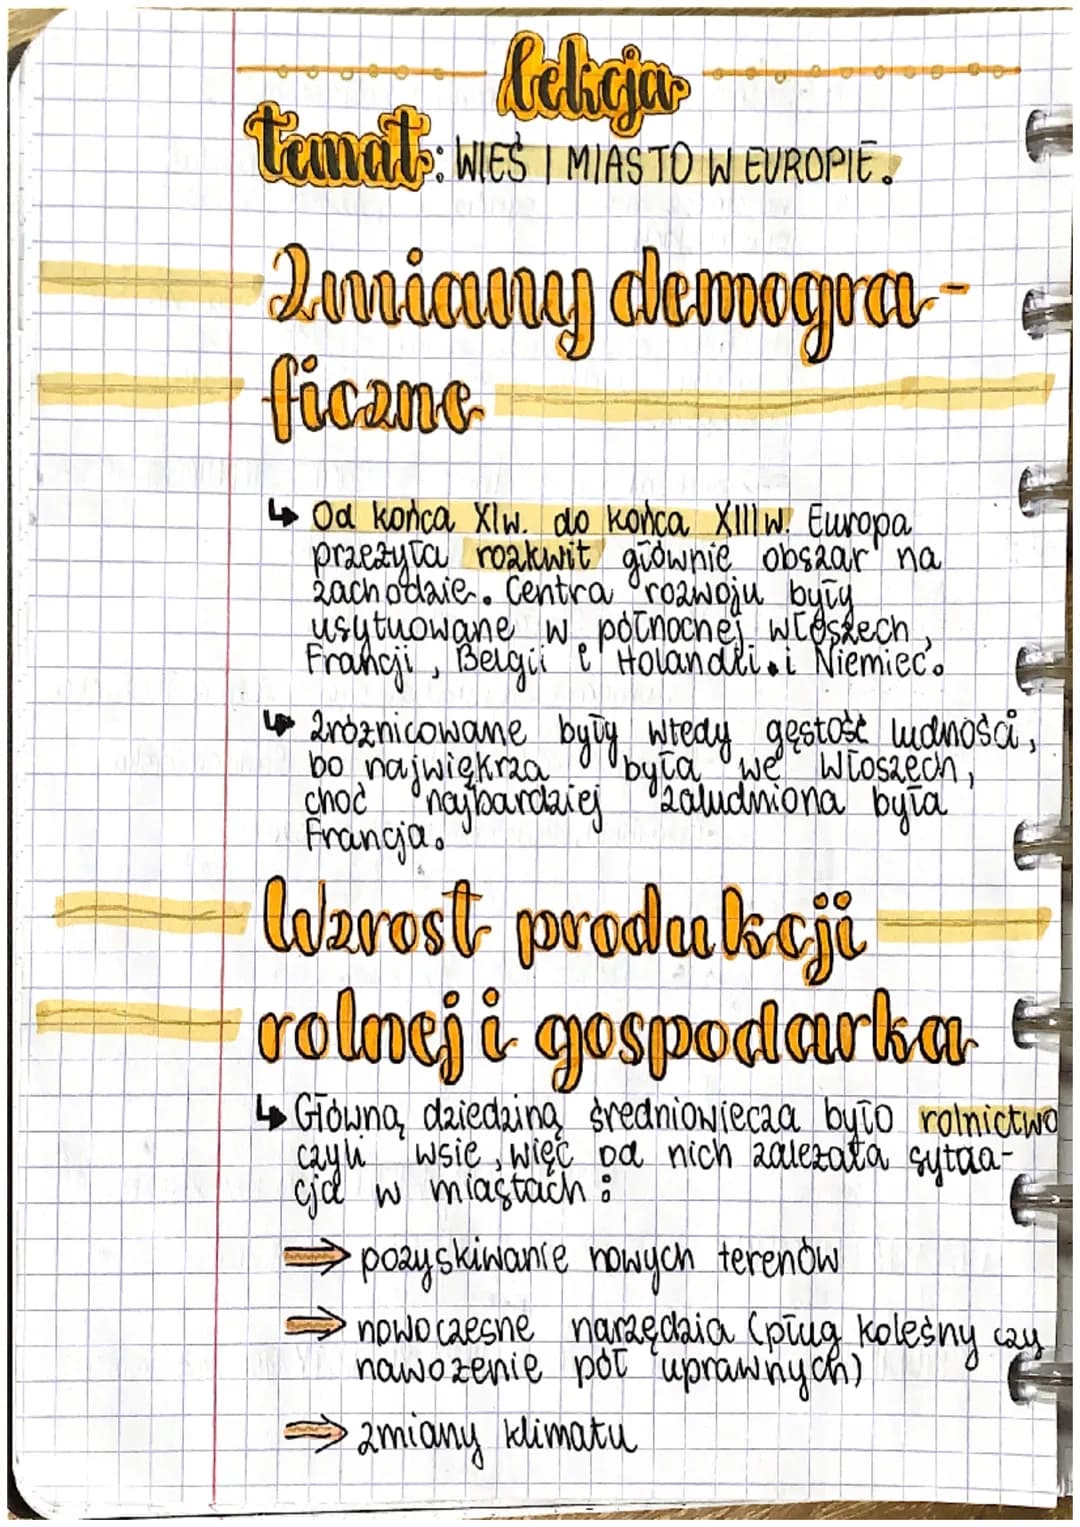 lekcja
temat: WIEŚ I MIASTO W EUROPIE.
Zmiany demogra-
ficzne
↳ Od końca XIw. do końca XIIIw. Europa
przeżyła rozkwit głównie obszar na
zachodzie. Centra rozwoju były
usytuowane w północnej włoszech,
Francji, Belgii i Holandii. i Niemiec.
↳ Zróżnicowane były wtedy gęstość ludności,
bo najwiękrza była we Włoszech,
choć najbardziej zaludniona była
Francja.
Wzrost produkcji
rolnej i gospodarka
↳ Główną dziedziną średniowiecza było rolnictwo
czyli wsie, więc od nich zależała sytua-
cja w miastach:
⇒ pozyskiwanie nowych terenów
⇒ nowoczesne narzędzia (pług koleśny czy
nawożenie pół uprawnych)
⇒ zmiany klimatu